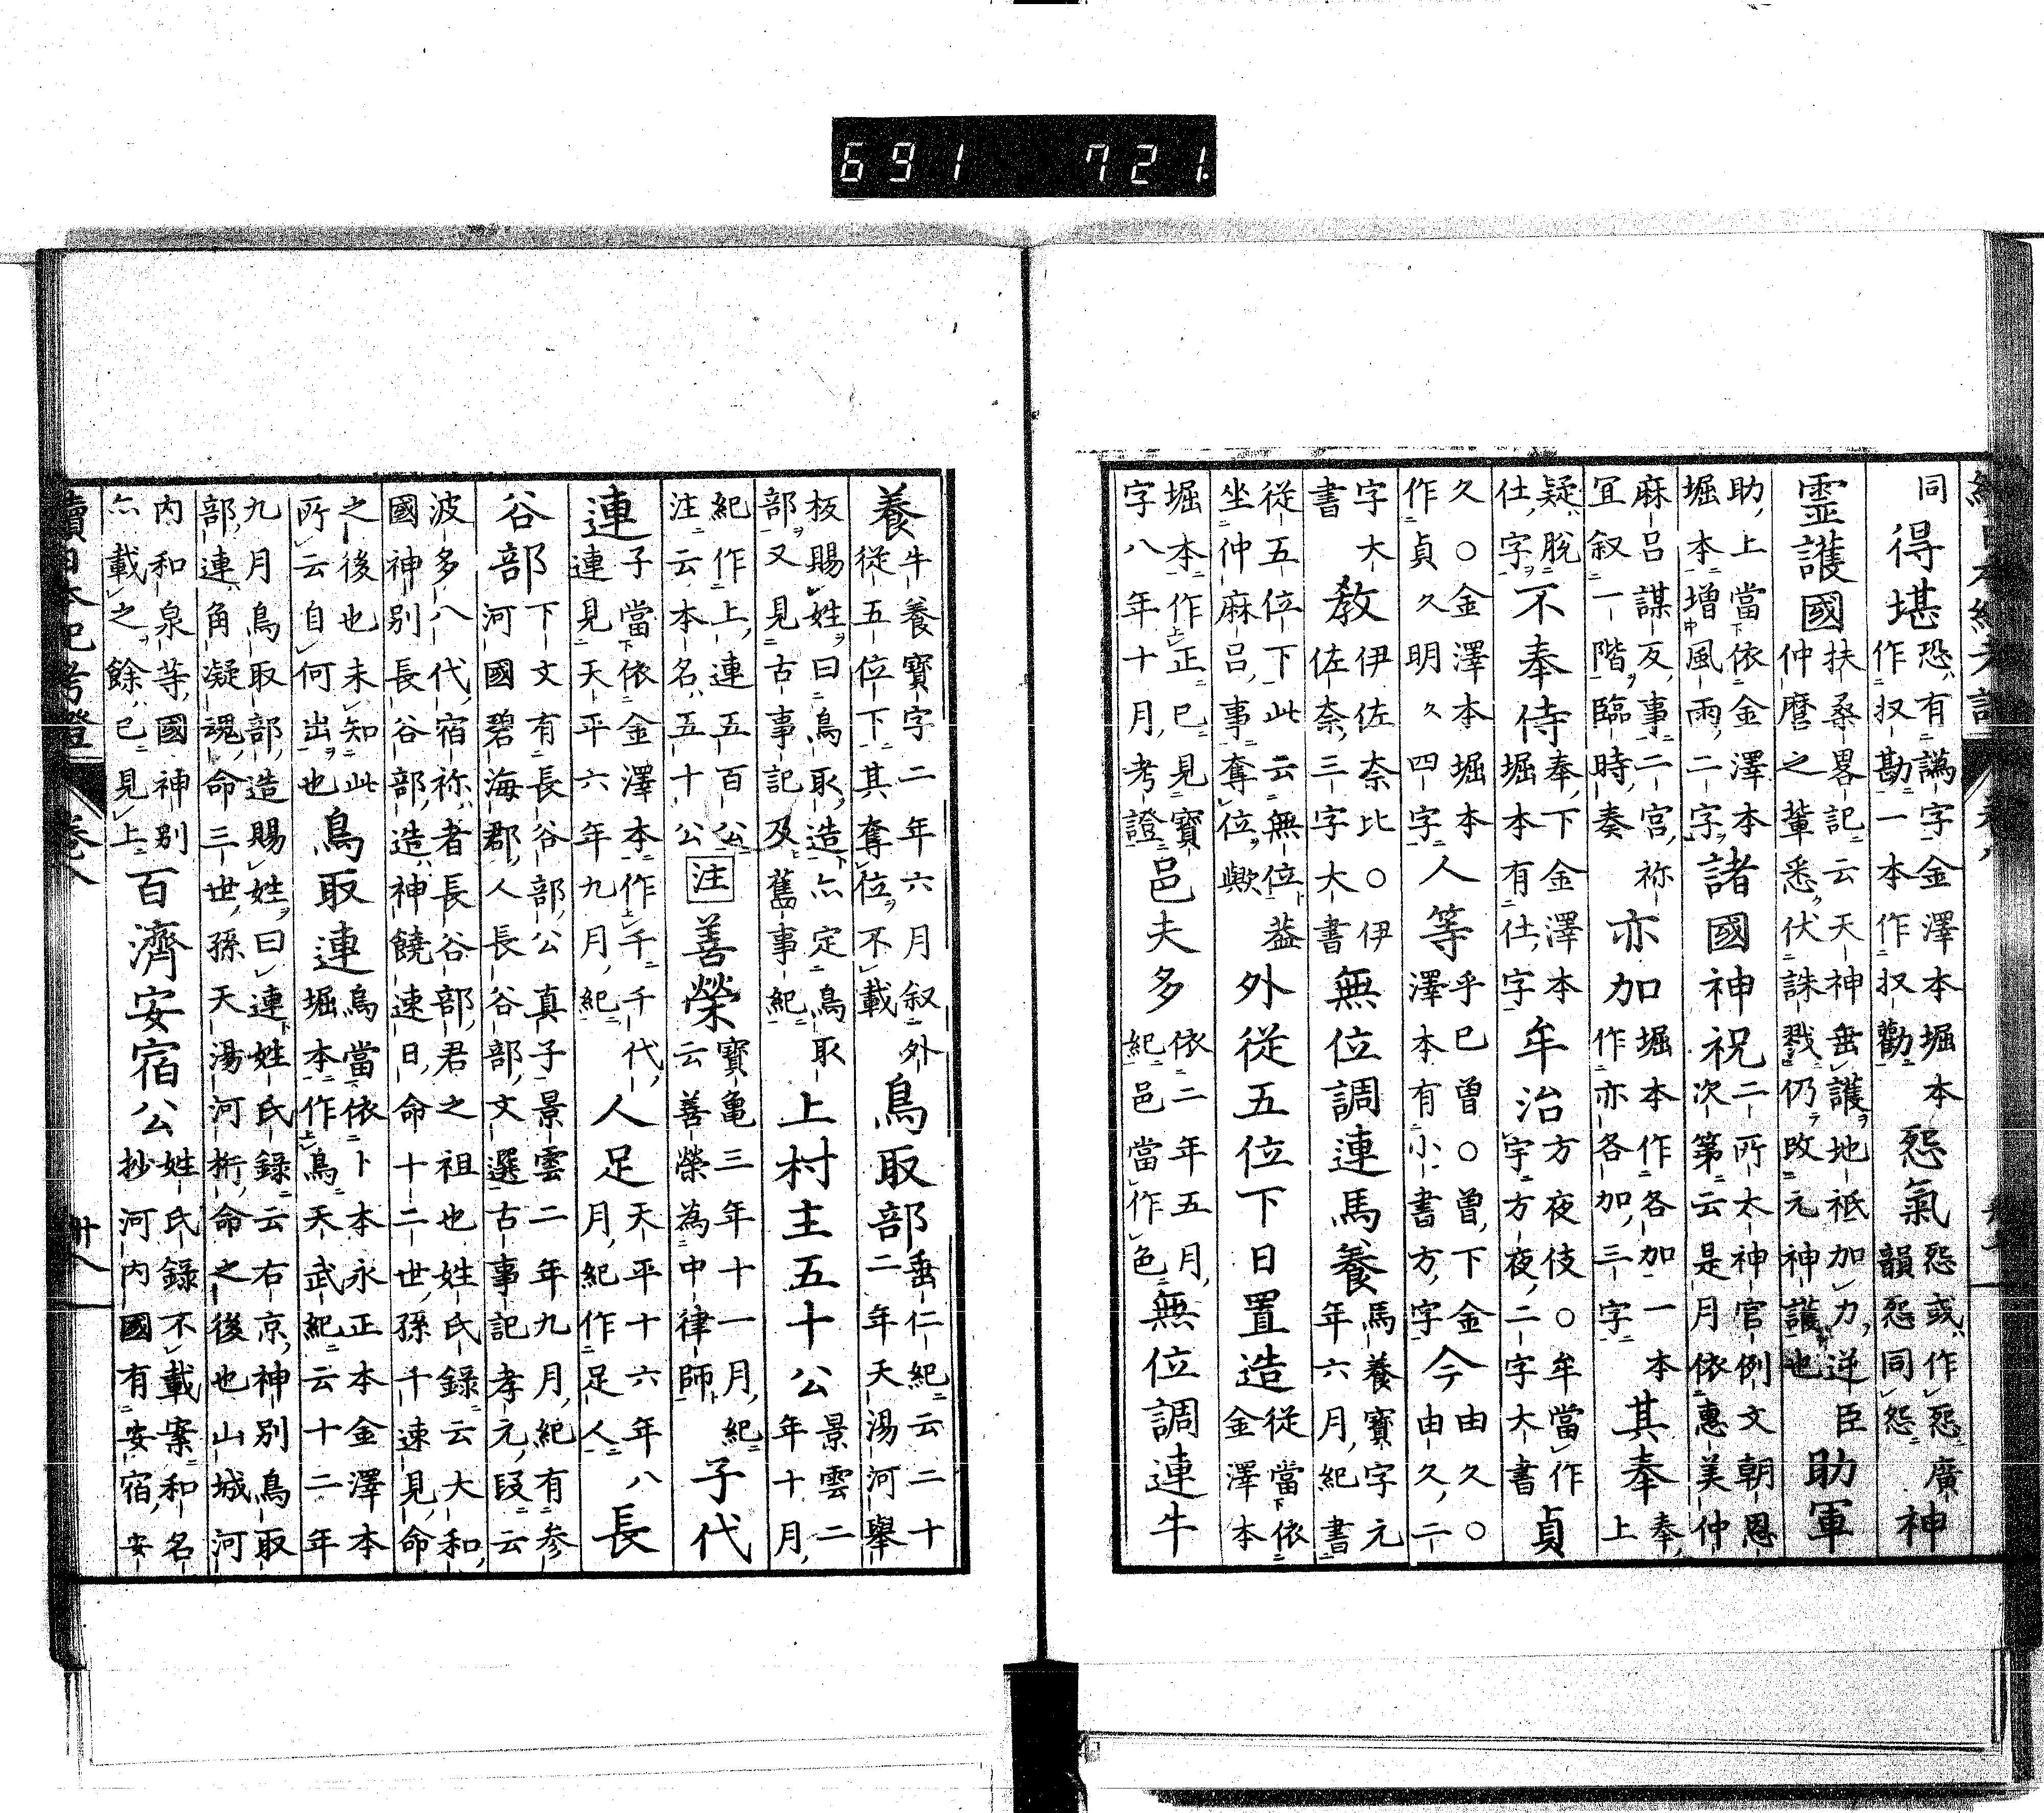 同得堪恐有譌字金澤本堀本作扠勘一本作扠勸怨氣怨或作惌廣韻惌同怨神
霊護國扶桑畧記云天神垂護地祇加力逆臣仲麿之輩悉伏誅戮仍改元神護也助軍
助上當依金澤本堀本増風雨二字諸國神祝二所太神官例文朝恩次第云是月依惠美仲
麻呂謀反事二宮祢宜叙一階臨時奏亦加堀本作各加一本作亦各加三字其奉奉上
疑脱仕字不奉侍奉下金澤本堀本有仕字牟治方夜伎○牟當作字方夜二字大書貞
久○金澤本堀本作貞久明久四字人等乎已曽○曽下金澤本有小書方字今由久○由久二
字大書教伊佐奈比○伊佐奈三字大書無位調連馬養馬養寶字元年六月紀書
從五位下此云無位葢坐仲麻呂事奪位歟外從五位下日置造從當依金澤本
堀本作正已見寶字八年十月考證邑夫多依二年五月紀邑當作色無位調連牛
養牛養寶字二年六月叙外從五位下其奪位不載鳥取部垂仁紀云二十二年天湯河擧
板賜姓曰鳥取造亦定鳥取部又見古事記及舊事紀上村主五十公景雲二年十月
紀作上連五百公注云本名五十公注善榮寶亀三年十一月紀云善榮為中律師子代
子當依金澤本作千千代連見天平六年九月紀人足天平十六年八月紀作足人長
連
谷部下文有長谷部公真子景雲二年九月紀有参河國碧海郡人長谷部文選古事記孝元段云
波多八代宿祢者長谷部君之祖也姓氏録云大和國神別長谷部造神饒速日命十二世孫千速見命
之後也未知此所云自何出也鳥取連鳥當依卜本永正本金澤本堀本作鳥天武紀云十二年
九月鳥取部造賜姓曰連姓氏録云右京神別鳥取部連角凝魂命三世孫天湯河桁命之後也山城河
内和泉等國神別亦載之餘已見上百濟安宿公姓氏録不載案和名抄河内國有安宿安
續日本紀考證 卷八 卅八